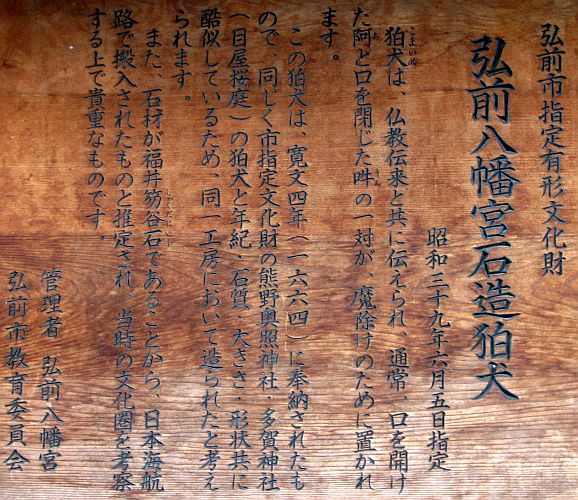 弘前市指定有形文化財
弘前八幡宮石造狛犬
昭和三十九年六月五日指定
狛犬は、仏教伝来と共に伝えられ、通常、口を開け
た阿と口を閉じた吽の一対が、魔除けのために置かれ
ます。
この狛犬は、寛文四年(一六六四)に奉納されたも
ので、同じく市指定文化財の熊野奥照神社・多賀神社
(目屋桜庭)の狛犬と年紀・石質、大きさ・形状共に
酷似しているため、同一工房において造られたと考え
られます。
また、石材が福井笏谷石であることから、日本海航
路で搬入されたものと推定され、当時の文化圏を考察
する上で貴重なものです。
管理者 弘前八幡宮
弘前市教育委員会